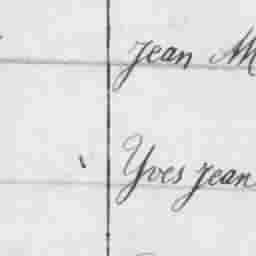 Jean
Yves Jean